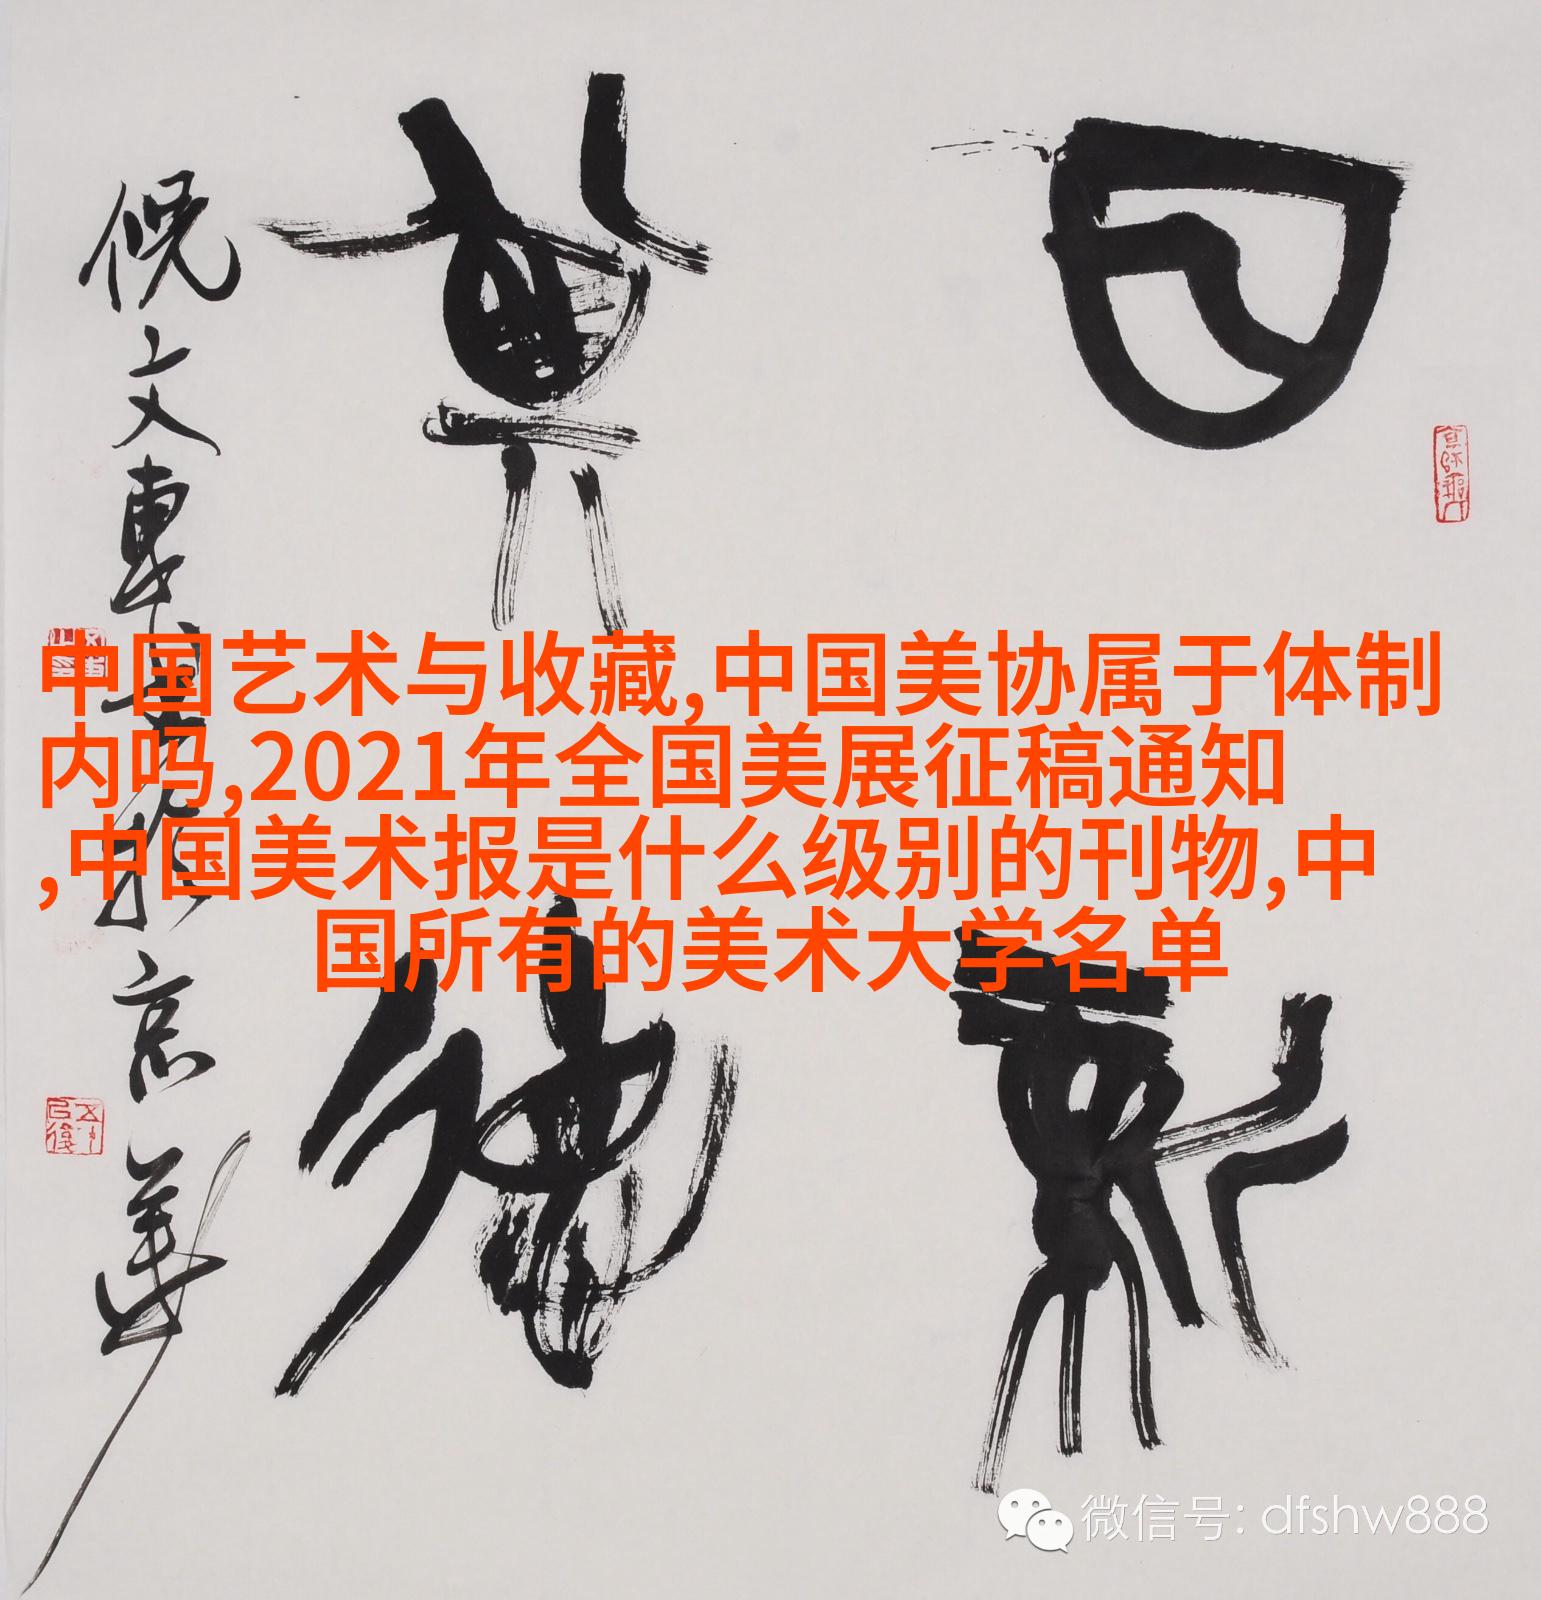 日
倪文東書於京華
中国艺术与收藏,中国美协属于体制
内吗,2021年全国美展征稿通知
,中国美术报是什么级别的刊物,中
国所有的美术大学名单
微信号: dfshw888